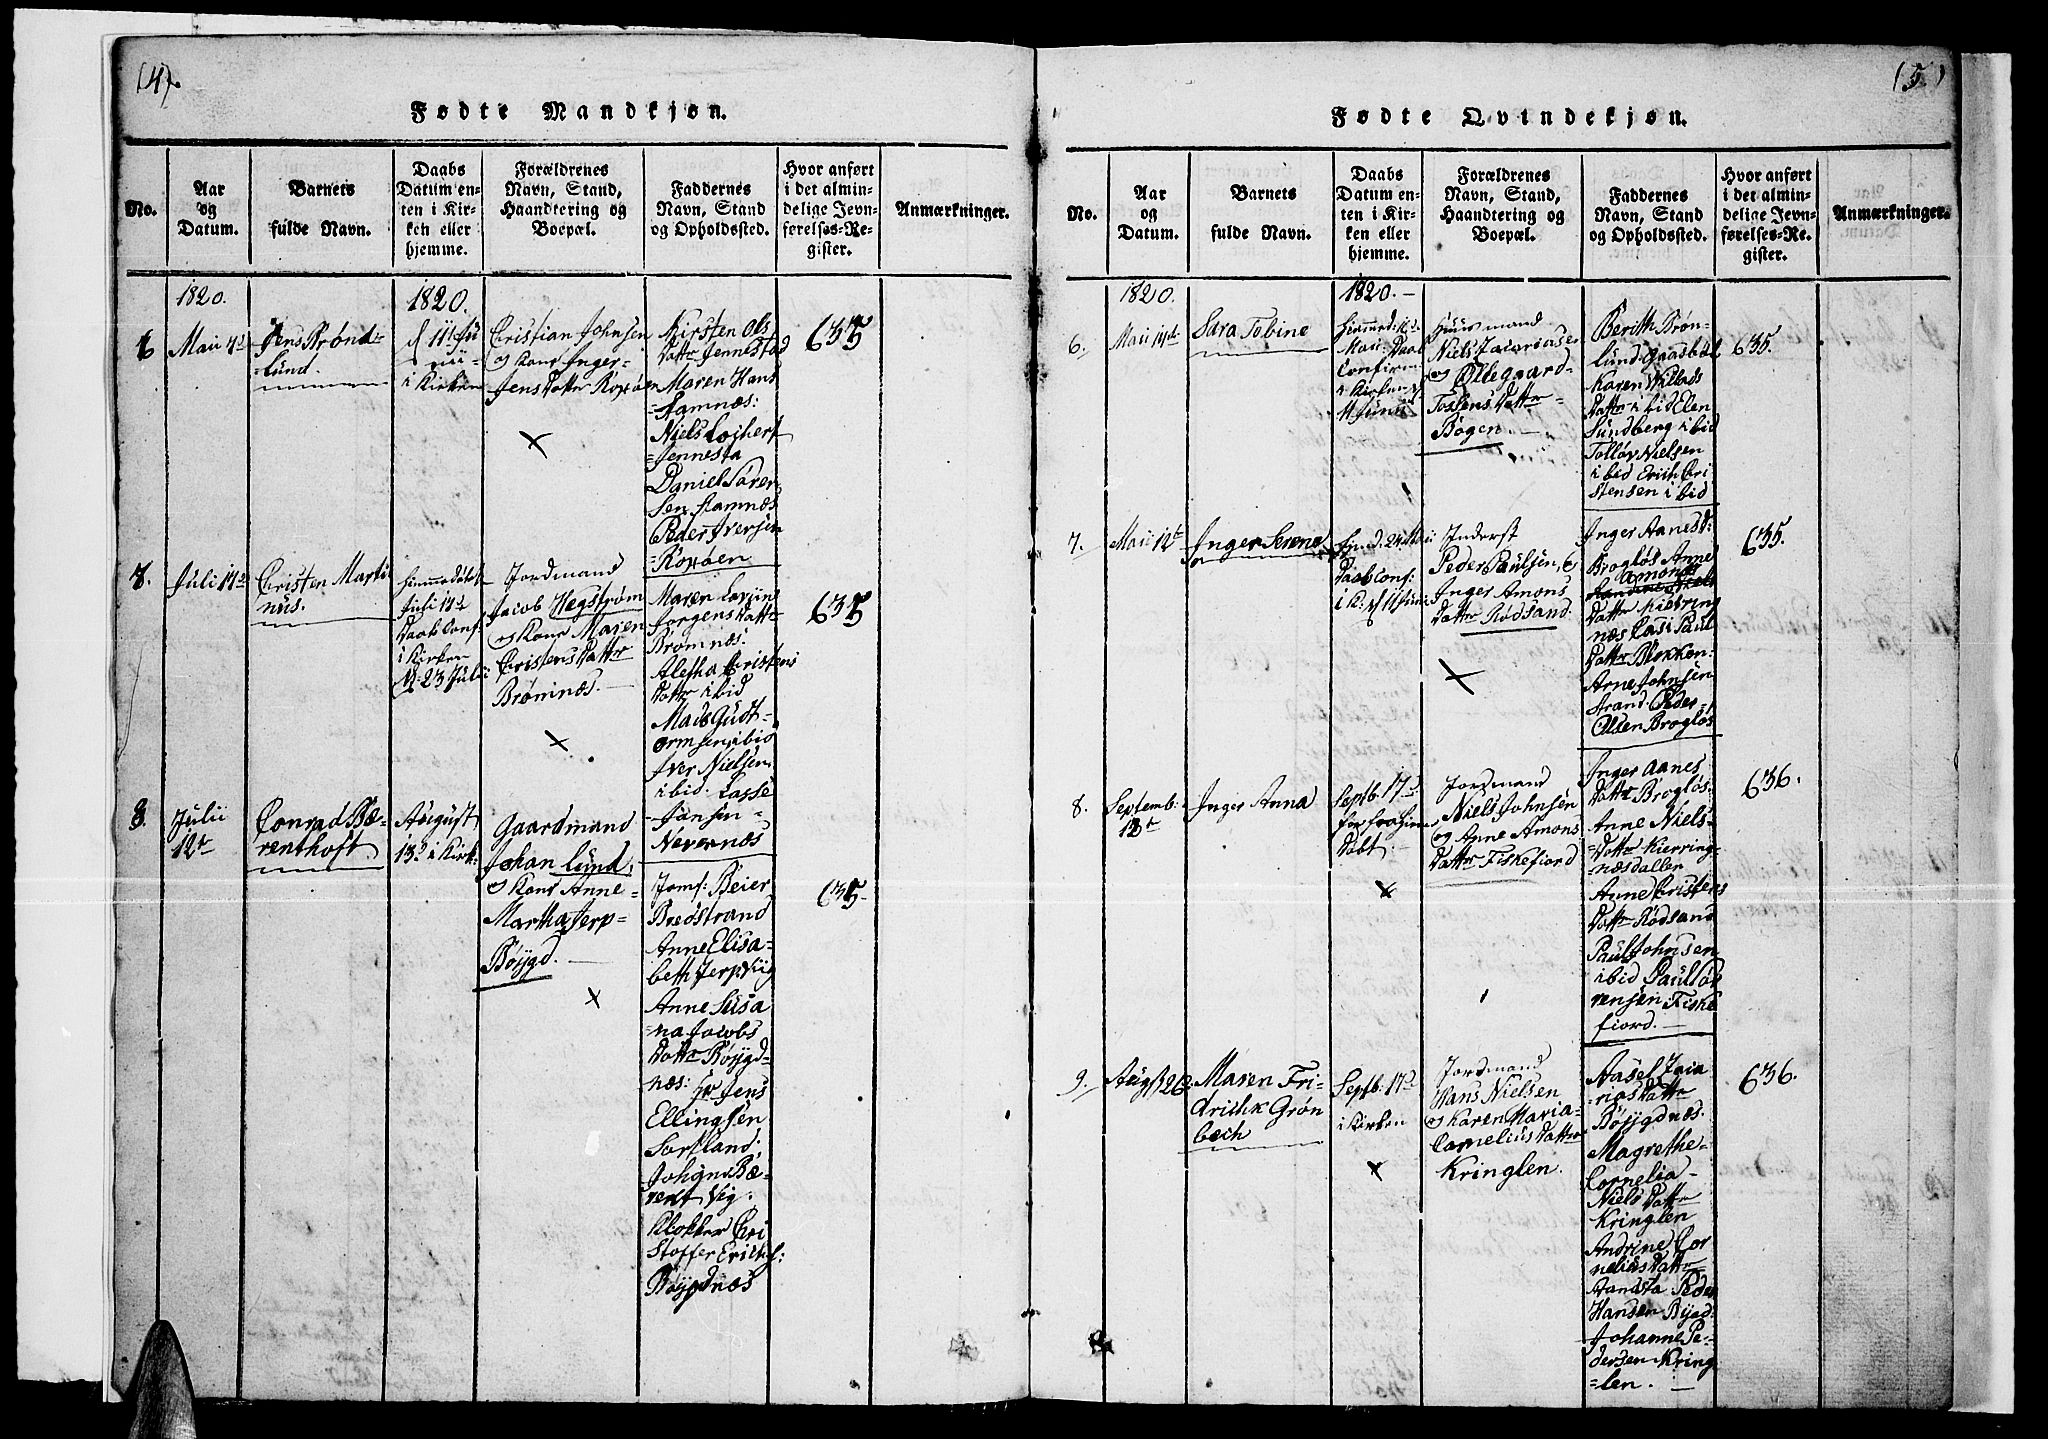 (4).
Fødte Mandkjøn.
No.
Aar
og
Datum.
Barnets
fulde Navn.
Daabs
Datum en-
ten i Kir-
ken eller
hjemme.
Forældrenes
Navn, Stand,
Haandtering og
Boepæl.
Faddernes
Navn, Stand
og Opholdssted.
Hvor anført
i det almin-
delige Jevn-
førelses-Re-
gister.
Anmærkninger.
1820.
6
Maii
Jens Brønd-
lund.
1820.
i Kirken
Christian Johnsen
og Kone Inger
Jens Datter
Kirsten Ols
Datter Jennestad
Maren Hans
Hamnæs:
Niels
Jennesta
Daniel Sören
Sen Hamnæs
Peder Iversen
635
7.
Juli
Christen Marti
nus.
Hiemmedöbt
Juli
Daab Conf:
i Kirken
23 Julii
Jordmand
Jacob Hegstrøm
og Kone Maren
Christens Datter
Brømnæs.
Maren
Jørgens Datter
Brømnæs:
Christens
Datter ibid
Mads Gudt-
ormsen ibid
Iver Nielsen
ibid. Lasse
Jansen
Nevernæs
635
8.
Julii
12te
Conrad Bæ-
renthoft
August
13d i Kirk:
Gaardmand
Johan Lund,
og Kone Anne
Martha Jerp-
Böygd.
Jomf: Beier
Bredstrand
Anne Elisa-
beth Jerp Viig
Anne Susa
na Jacobs
Datter Böygd-
næs: Hr Jens
Ellingsen
Sortland:
Johan Bæ-
rent Vig.
Klokker Chri
Stoffer Erichs:
Böygdnæs
635.
(5)
Fødte Qvindekjøn.
No.
Aar
og
Datum.
Barnets
fulde Navn.
Daabs
Datum en-
ten i Kir-
ken eller
hjemme.
Forældrenes
Navn, Stand,
Haandtering og
Boepæl.
Faddernes
Navn, Stand
og Opholdssted.
Hvor anført
i det almin-
delige Jevn-
førelses-Re-
gister.
Anmærkninger.
1820.
6.
Maii
Sara Tobine
1820.
Maii Daab
Confirm
i Kirken
Huusmand
Niels
og Øllegaard
Datter
Bogen.
Berith Brøn-
lund Gaasböl
Karen Willads
Datter ibid Elen
Sundberg ibid
Nielsen
ibid Erich Cri
stensen ibid
635.
7.
Maii 12te
Inger Serene
Daab Conf:
Inderst
Peder Paulsen, og
Inger Amons
Datter Rödsand.
Inger Aanes d:
Brogløs Anne
Amonds
Datter Kiering
næs Paul
Datter Blokken:
Arne Johnsen
Strand. Peder
Olsen Brogløs
635.
8.
Septemb:
Inger Anna
Septb. 17d
Döbt.
Jordmand
Niels Johnsen
og Anne Amons
Datter Fiskefiord
Inger Aanes
Datter Brogløs.
Anne Niels
Datter Kierring-
næsdallen
Anne Cristens
Datter Rödsand
Paul Johnsen
ibid Paul Sör
rensen Fiske
fiord.
636.
9.
Augst 26
Maren Fri-
drichk Grøn
bech
Septb: 17d
i Kirken
Jordmand
Hans Nielsen
og Karen Maria
Cornelius Datter
Kringlen.
Aasel
rias Datter
Böygdnæs.
Magrethe
Cornelia
Niels Datter
Kringlen
Andrine Cor
nelius Datter
Peder
Hansen Bygd:
Johanne Pe-
dersen Kring
len.
636.